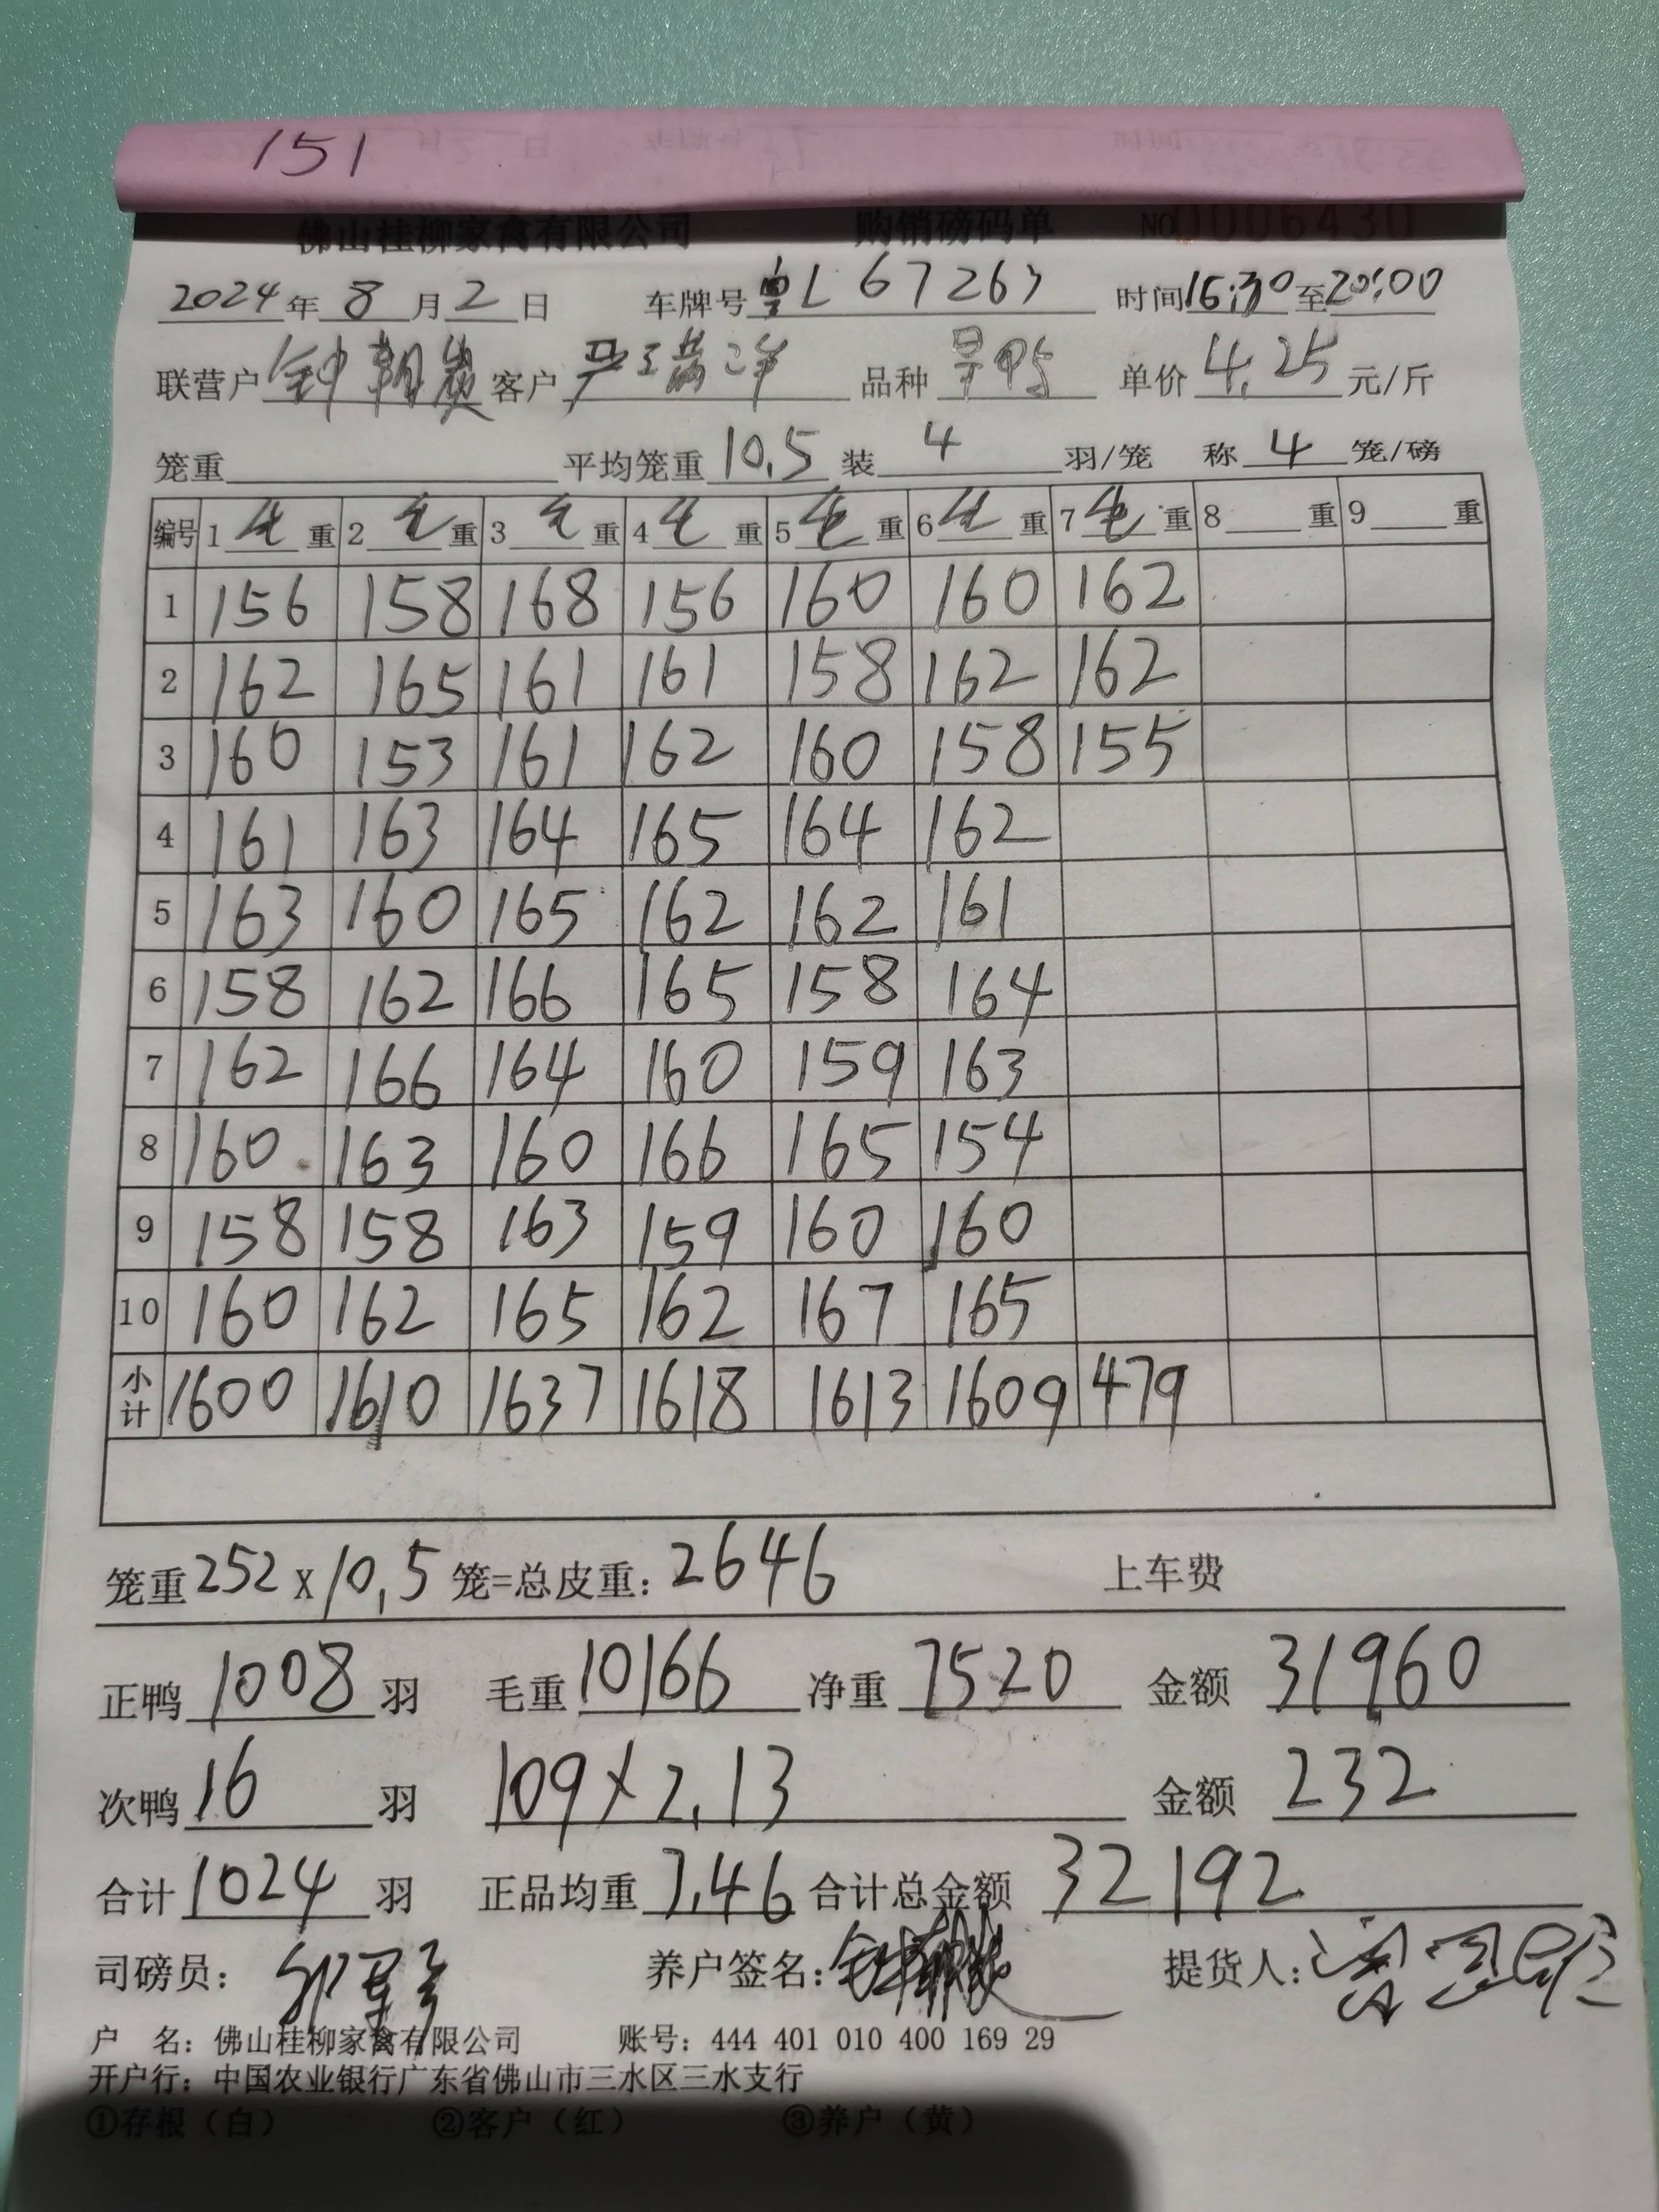 151
佛山桂柳家禽有限公司 购销磅码单 NO 0006430
2024年8月2日 车牌号粤L67263 时间16:30至20:00
联营户钟朝 客户 品种 单价4.25元/斤
笼重 平均笼重10.5装4羽/笼 称4笼/磅
编号 1毛重 2毛重 3毛重 4毛重 5毛重 6毛重 7毛重 8重 9重
1 156 158 168 156 160 160 162
2 162 165 161 161 158 162 162
3 160 153 161 162 160 158 155
4 161 163 164 165 164 162
5 163 160 165 162 162 161
6 158 162 166 165 158 164
7 162 166 164 160 159 163
8 160 163 160 166 165 154
9 158 158 163 159 160 160
10 160 162 165 162 167 165
小计 1600 1610 1637 1618 1613 1609 479
笼重252x10.5笼=总皮重：2646 上车费
正鸭1008羽 毛重10166 净重7520 金额31960
次鸭16羽 109×2.13 金额232
合计1024羽 正品均重7.46 合计总金额32192
司磅员： 养户签名： 提货人：
户 名：佛山桂柳家禽有限公司 账号：444 401 010 400 169 29
开户行：中国农业银行广东省佛山市三水区三水支行
①存根（白） ②客户（红） ③养户（黄）